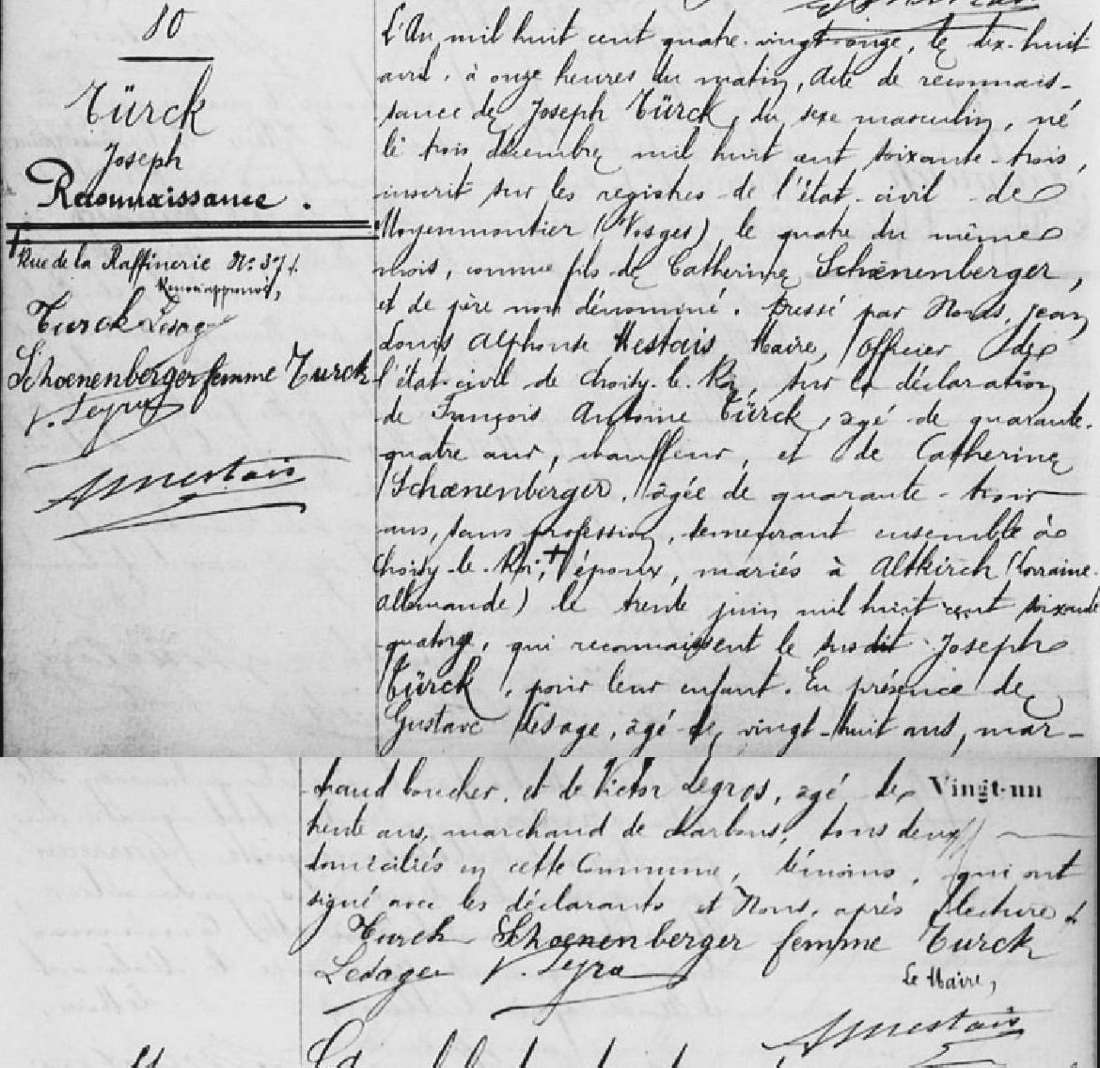 80
Türck
Joseph
Reconnaissance.
+ Rue de la Raffinerie No 37 /.
Renvoi approuvé,
Turck Lesage
Schoenenberger femme Turck
AMestais
L'An mil huit cent quatre-vingt-onze, le dix-huit
avril, à onze heures du matin, Acte de reconnais-
sance de Joseph Türck, du sexe masculin, né
le trois décembre mil huit cent soixante-trois,
inscrit sur les registres de l'état-civil de
Moyenmoutier (Vosges) le quatre du même
mois, comme fils de Catherine Schœnenberger,
et de père non dénommé. Dressé par Nous, Jean
Louis Alphonse Mestais Maire, Officier de
l'état-civil de Choisy-le-Roi, sur la déclaration
de François Antoine Türck, âgé de quarante-
quatre ans, chauffeur, et de Catherine
Schœnenberger, âgée de quarante-trois
ans, sans profession, demeurant ensemble à
Choisy-le-Roi, + époux, mariés à Altkirch (Lorraine
Allemande) le trente juin mil huit cent soixante
quatorze, qui reconnaissent le susdit Joseph
Türck, pour leur enfant. En présence de
Gustave Lesage, âgé de vingt-huit ans, mar-
chand boucher, et de Victor Legros, âgé de Vingt-un
trente ans, marchand de charbons, tous deux
domiciliés en cette Commune, témoins, qui ont
signé avec les déclarants et Nous, après lecture /.
Turck Schoenenberger femme Turck
Lesage V.
Le Maire,
AMestais